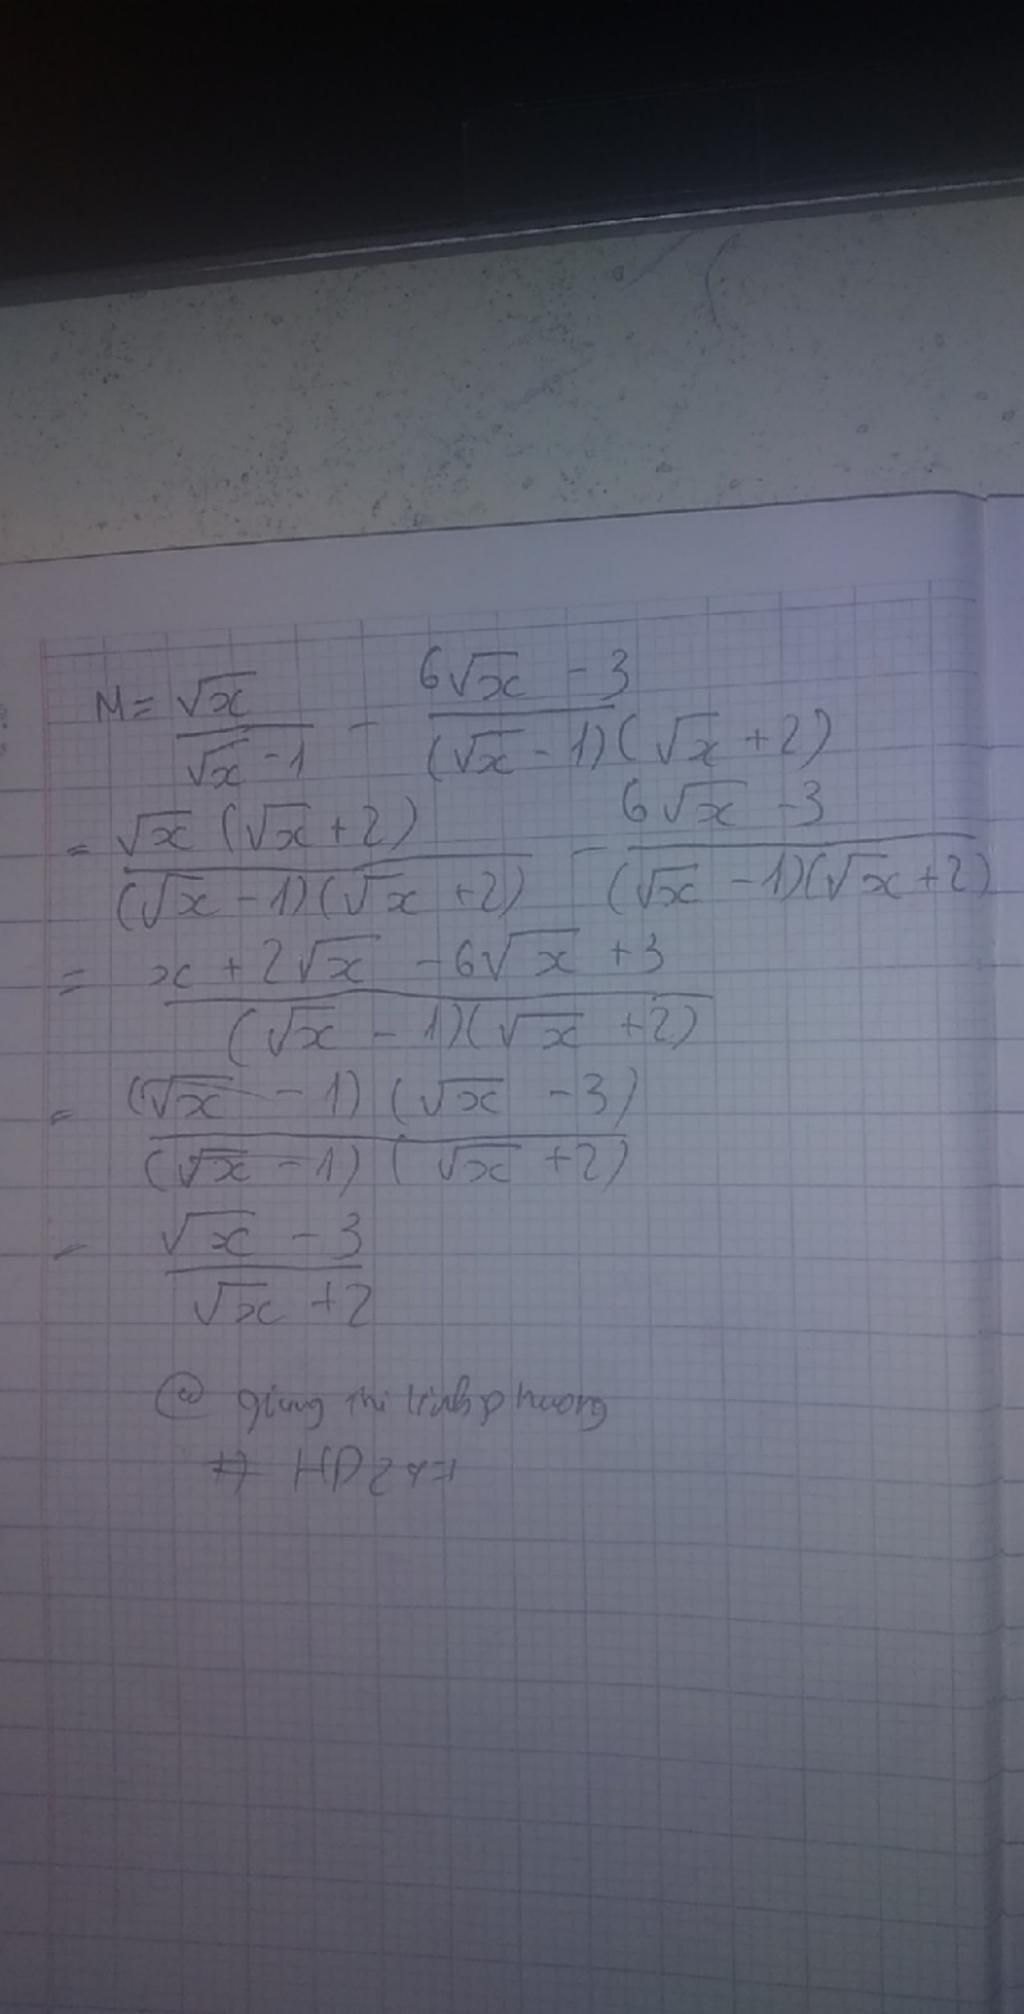 M = √x / (√x - 1) - (6√x - 3) / ((√x - 1)(√x + 2))
= √x (√x + 2) / ((√x - 1)(√x + 2)) - (6√x - 3) / ((√x - 1)(√x + 2))
= (x + 2√x - 6√x + 3) / ((√x - 1)(√x + 2))
= (√x - 1)(√x - 3) / ((√x - 1)(√x + 2))
= (√x - 3) / (√x + 2)
@ giang thi linh phuong